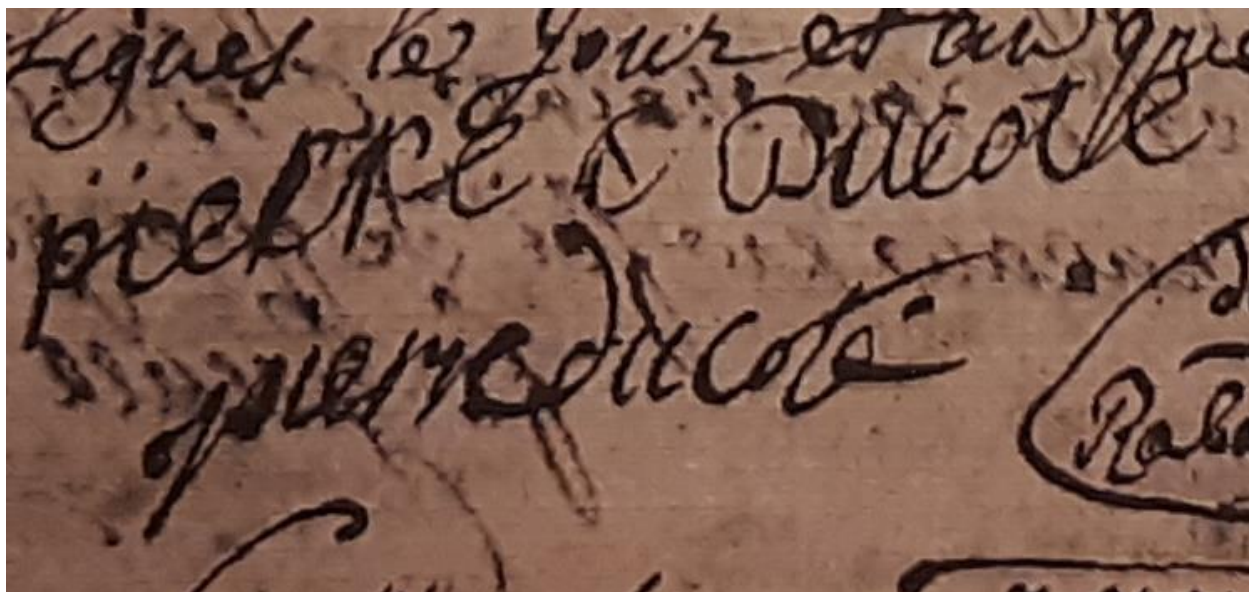 signes le jour et an que
pierre Ducoté
pierre ducoté
Rab